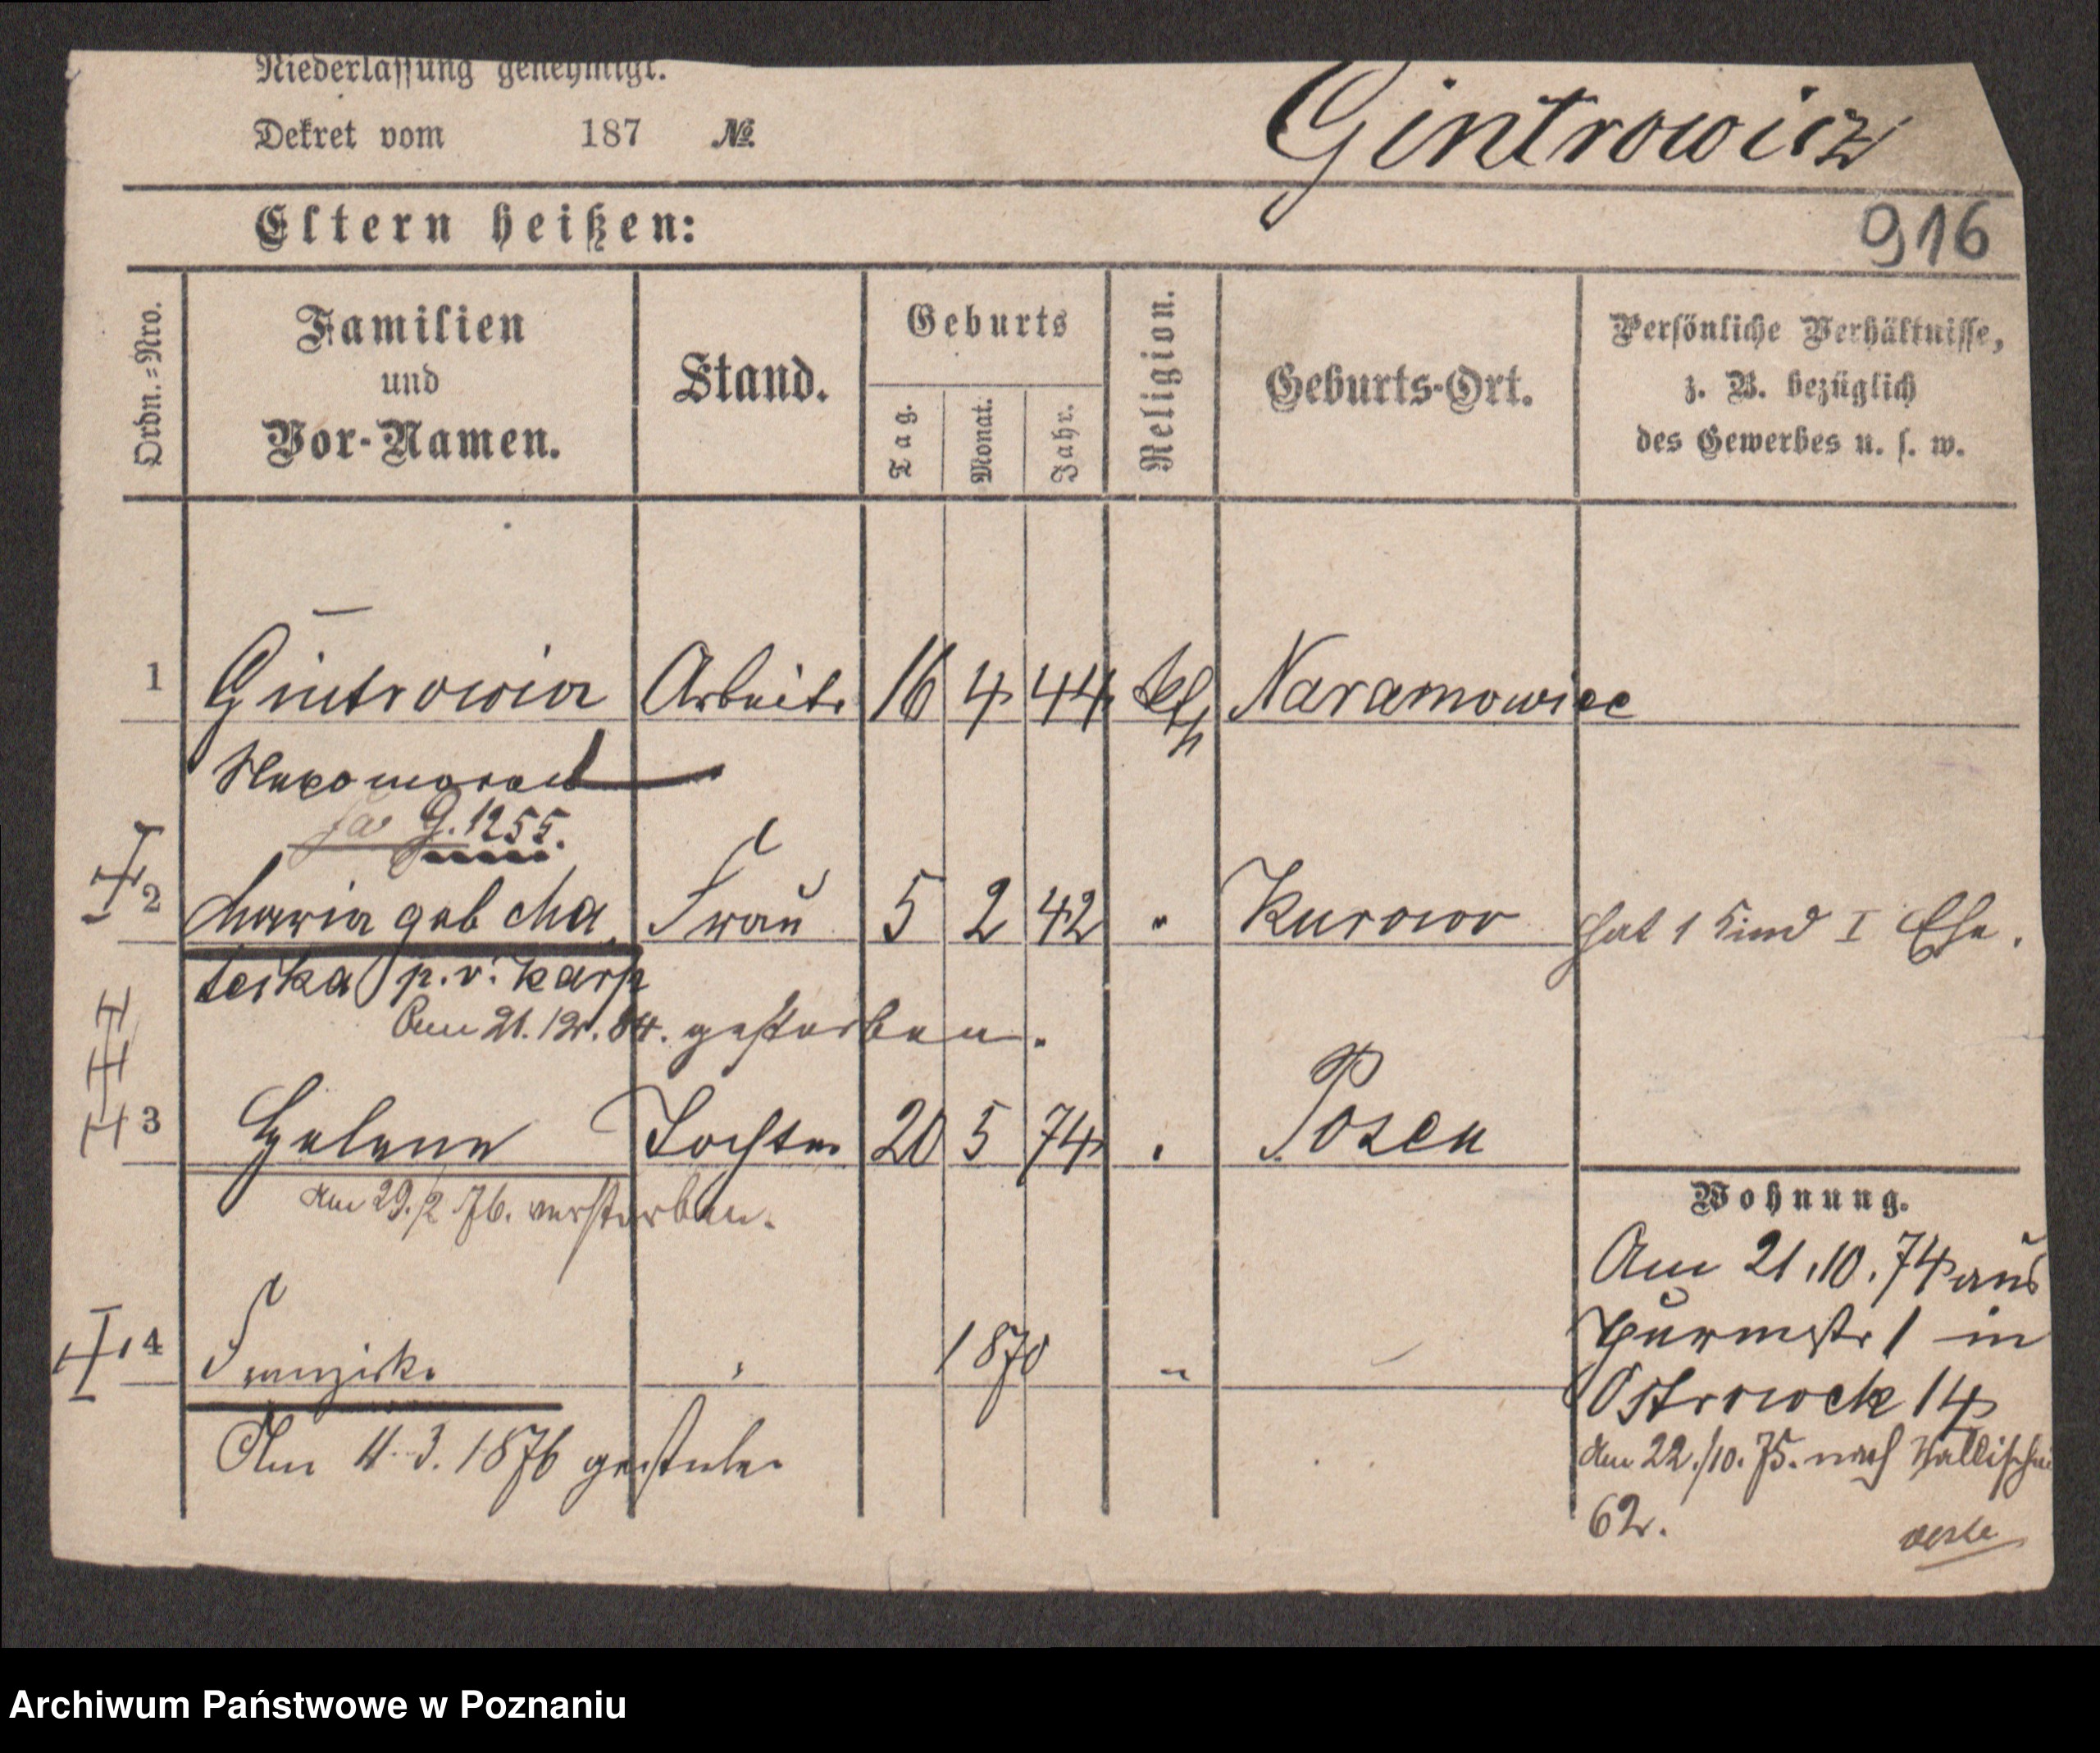 Niederlassung genehmigt.
Dekret vom 187 №
Gintrowicz
Eltern heißen:
916
Ordn.=Nro.
Familien
und
Vor-Namen.
Stand.
Geburts
Tag.
Monat.
Jahr.
Religion.
Geburts-Ort.
Persönliche Verhältnisse,
z. B. bezüglich
des Gewerbes u. s. w.
1 Gintrowicz Arbeitr 16 4 44 kth Naramowice
Nepomucen
G. 1255.
2 Maria geb Ma Frau 5 2 42 " Kurowo hat 1 Kind I Ehe.
teška p. v. Karp
Am 21. 12. 84. gestorben.
3 Helene Tochter 20 5 74 " Posen
am 29./2 76. verstorben.
Wohnung.
Am 21.10.74 aus
Thurmstr 1 in
4 Franziska " 1870 "
Ostrowek 14
Am 4. 3. 1876 gestorben
Am 22./10. 75. nach Wallischei
62.